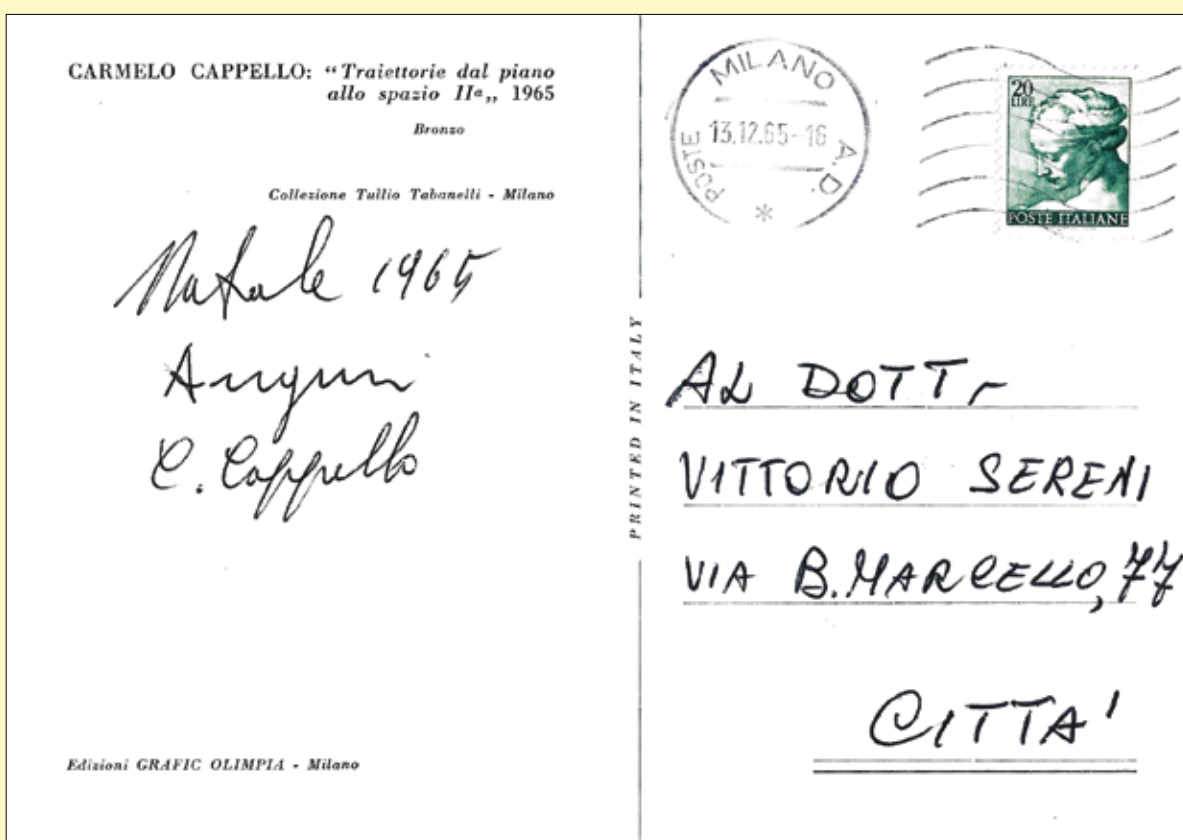 CARMELO CAPPELLO: “Traiettorie dal piano
allo spazio IIª„ 1965
Bronzo
Collezione Tullio Tabanelli - Milano
Natale 1965
Auguri
C. Cappello
Edizioni GRAFIC OLIMPIA - Milano
PRINTED IN ITALY
MILANO A.D.
13.12.65-16
POSTE *
20
LIRE
POSTE ITALIANE
AL DOTT.
VITTORIO SERENI
VIA B. MARCELLO, 77
CITTA'